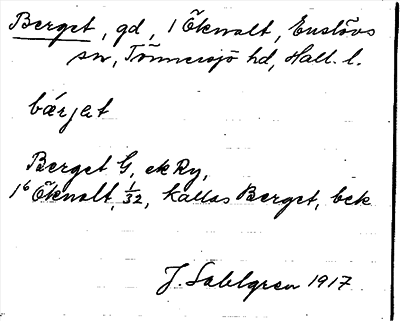 Berget, gd, 1 Öknalt, Enslövs
sn, Tönnersjö hd, Hall. l.
bærjet
Berget G, ek Ry,
1⁶ Öknalt, 1/32, kallas Berget, bek
J. Sahlgren 1917.